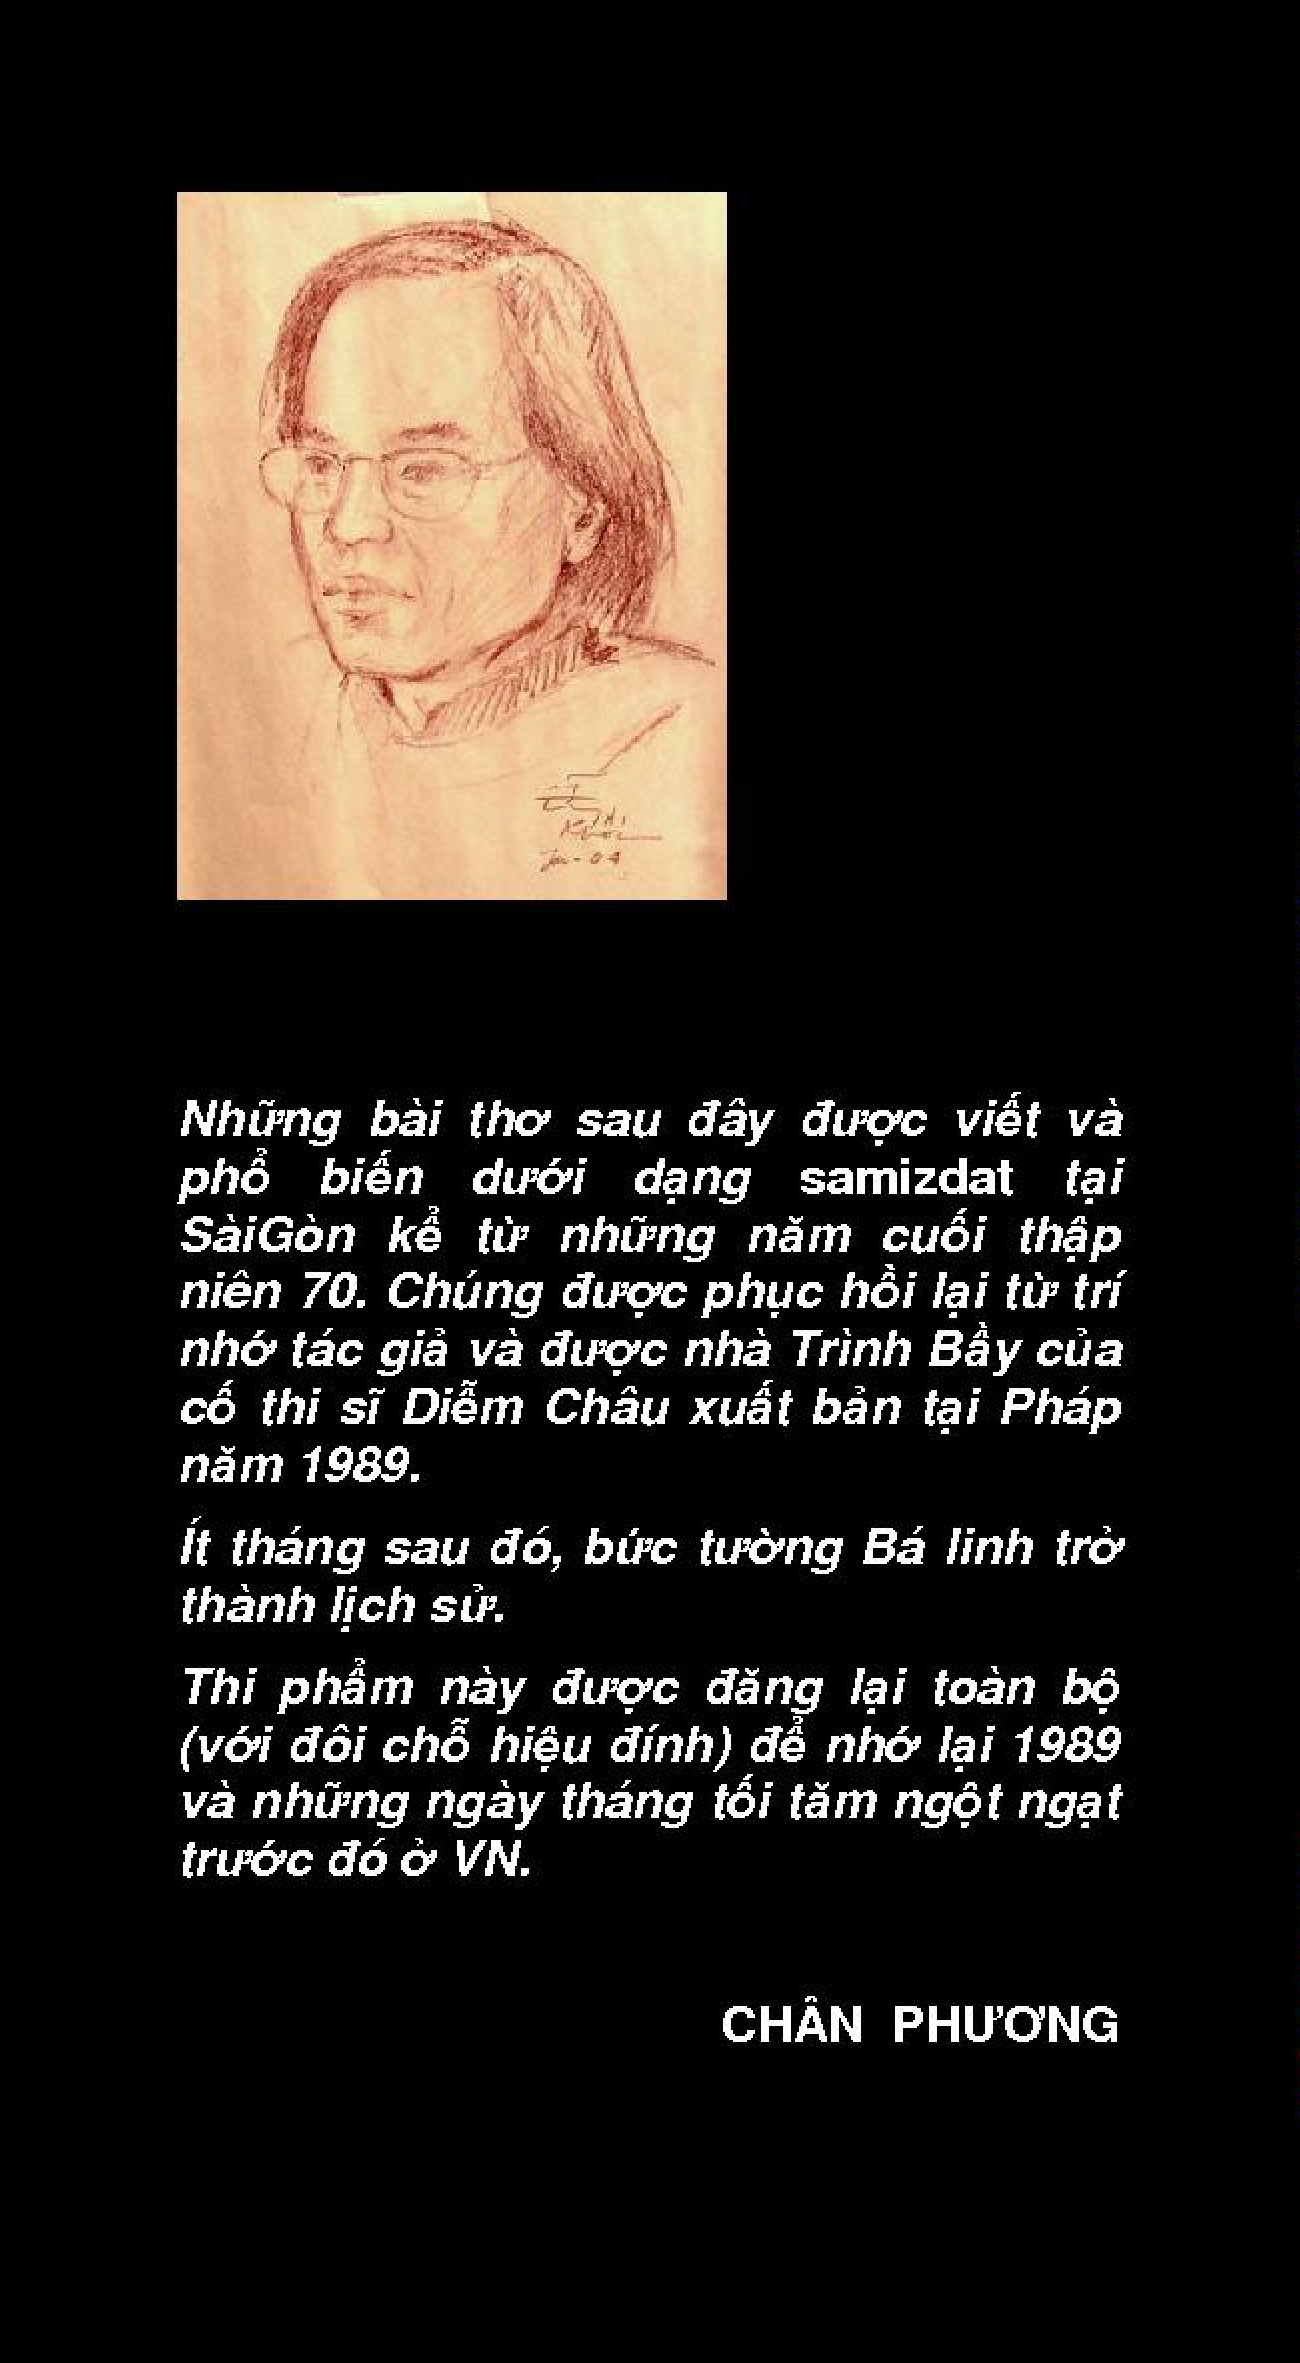 Những bài thơ sau đây được viết và
phổ biến dưới dạng samizdat tại
SàiGòn kể từ những năm cuối thập
niên 70. Chúng được phục hồi lại từ trí
nhớ tác giả và được nhà Trình Bầy của
cố thi sĩ Diễm Châu xuất bản tại Pháp
năm 1989.
Ít tháng sau đó, bức tường Bá linh trở
thành lịch sử.
Thi phẩm này được đăng lại toàn bộ
(với đôi chỗ hiệu đính) để nhớ lại 1989
và những ngày tháng tối tăm ngột ngạt
trước đó ở VN.
CHÂN PHƯƠNG